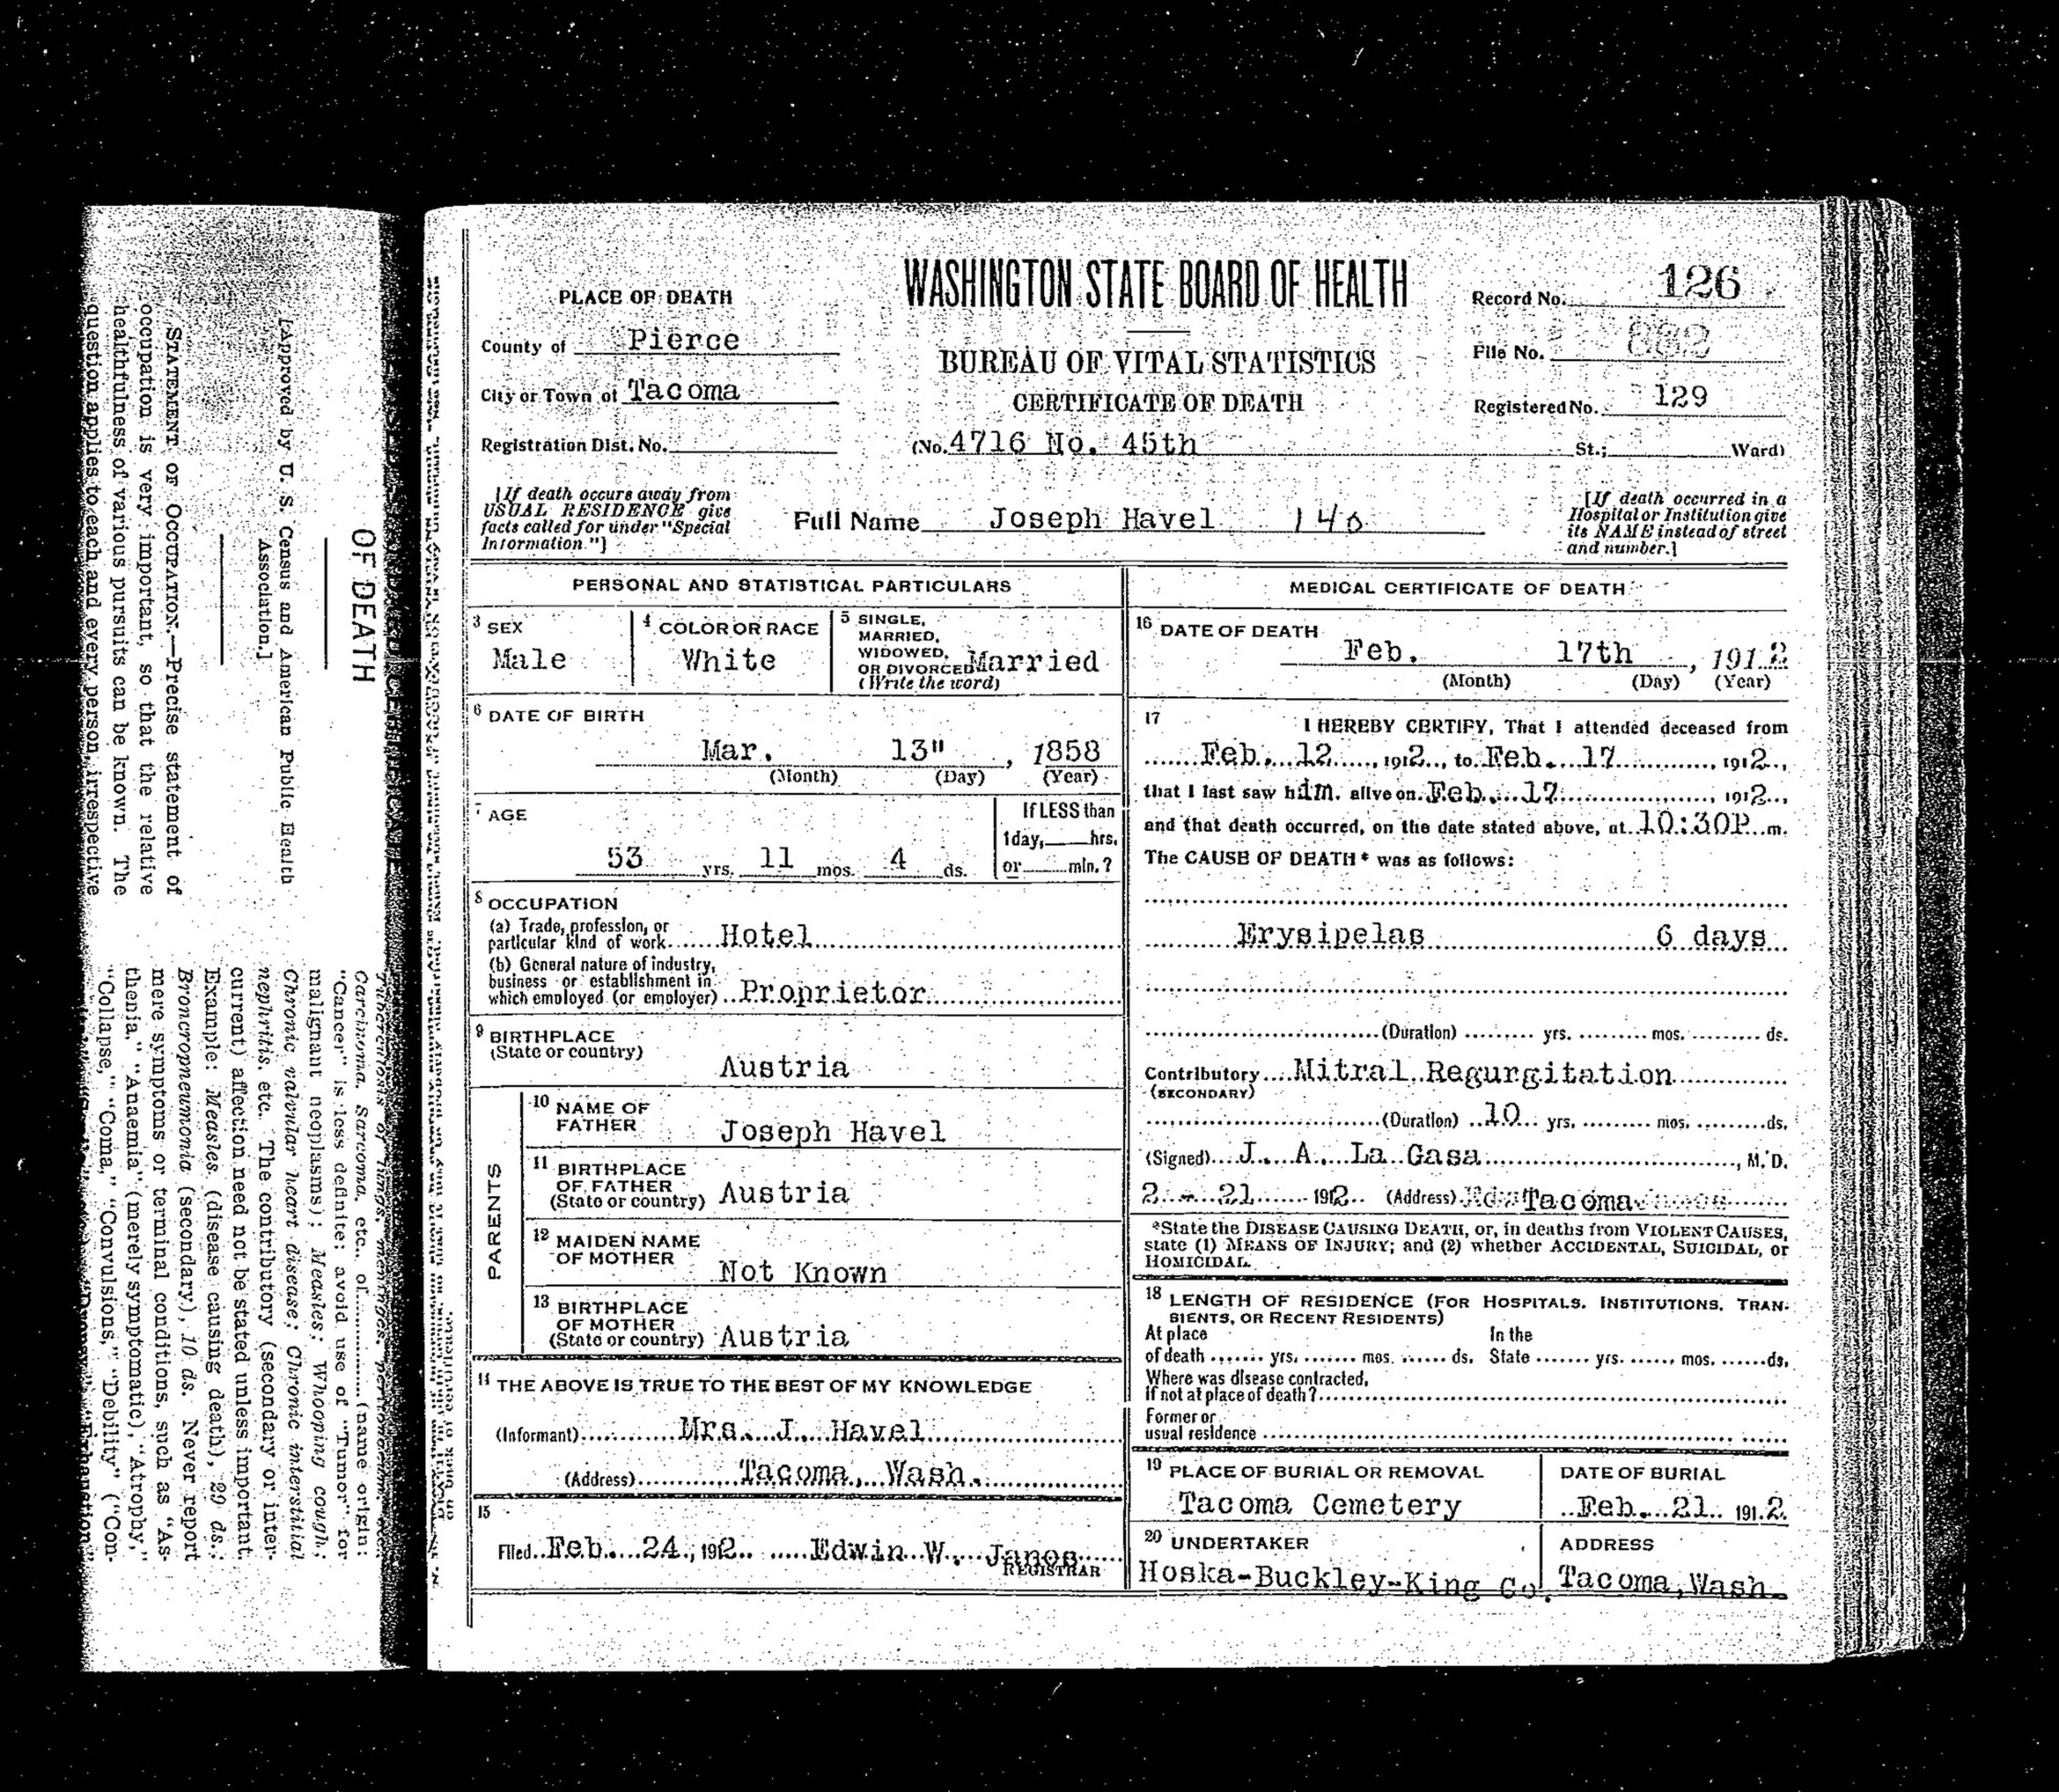 WASHINGTON STATE BOARD OF HEALTH
BUREAU OF VITAL STATISTICS
CERTIFICATE OF DEATH
PLACE OF DEATH
County of Pierce
City or Town of Tacoma
Registration Dist. No.
(No. 4716 No. 45th St.; Ward)
Record No. 126
File No. 882
Registered No. 129
[If death occurs away from
USUAL RESIDENCE give
facts called for under "Special
Information."]
Full Name Joseph Havel 146
[If death occurred in a
Hospital or Institution give
its NAME instead of street
and number.]
PERSONAL AND STATISTICAL PARTICULARS
3 SEX
Male
4 COLOR OR RACE
White
5 SINGLE,
MARRIED,
WIDOWED,
OR DIVORCED Married
(Write the word)
6 DATE OF BIRTH
Mar. 13" , 1858
(Month) (Day) (Year)
7 AGE
53 yrs. 11 mos. 4 ds.
If LESS than
1 day, hrs.
or min. ?
8 OCCUPATION
(a) Trade, profession, or
particular kind of work Hotel
(b) General nature of industry,
business or establishment in
which employed (or employer) Proprietor
9 BIRTHPLACE
(State or country)
Austria
PARENTS
10 NAME OF
FATHER Joseph Havel
11 BIRTHPLACE
OF FATHER
(State or country) Austria
12 MAIDEN NAME
OF MOTHER
Not Known
13 BIRTHPLACE
OF MOTHER
(State or country) Austria
14 THE ABOVE IS TRUE TO THE BEST OF MY KNOWLEDGE
(Informant) Mrs. J. Havel
(Address) Tacoma, Wash.
15
Filed Feb. 24, 1912 Edwin W. Janes
REGISTRAR
MEDICAL CERTIFICATE OF DEATH
16 DATE OF DEATH
Feb. 17th , 1912
(Month) (Day) (Year)
17 I HEREBY CERTIFY, That I attended deceased from
Feb. 12 , 1912, to Feb. 17 , 1912,
that I last saw him alive on Feb. 17 , 1912,
and that death occurred, on the date stated above, at 10:30P m.
The CAUSE OF DEATH* was as follows:
Erysipelas 6 days
(Duration) yrs. mos. ds.
Contributory Mitral Regurgitation
(SECONDARY)
(Duration) 10 yrs. mos. ds.
(Signed) J. A. La Gasa , M. D.
2 - 21 1912 (Address) Tacoma
*State the DISEASE CAUSING DEATH, or, in deaths from VIOLENT CAUSES,
state (1) MEANS OF INJURY; and (2) whether ACCIDENTAL, SUICIDAL, or
HOMICIDAL.
18 LENGTH OF RESIDENCE (FOR HOSPITALS, INSTITUTIONS, TRAN-
SIENTS, OR RECENT RESIDENTS)
At place In the
of death yrs. mos. ds. State yrs. mos. ds.
Where was disease contracted,
if not at place of death?
Former or
usual residence
19 PLACE OF BURIAL OR REMOVAL
Tacoma Cemetery
DATE OF BURIAL
Feb. 21 1912
20 UNDERTAKER
Hoska-Buckley-King Co.
ADDRESS
Tacoma, Wash.
OF DEATH
[Approved by U. S. Census and American Public Health
Association.]
STATEMENT OF OCCUPATION.—Precise statement of
occupation is very important, so that the relative
healthfulness of various pursuits can be known. The
question applies to each and every person, irrespective
Carcinoma, Sarcoma, etc., of (name origin;
"Cancer" is less definite; avoid use of "Tumor" for
malignant neoplasms); Measles; Whooping cough;
Chronic valvular heart disease; Chronic interstitial
nephritis, etc. The contributory (secondary or inter-
current) affection need not be stated unless important.
Example: Measles (disease causing death), 29 ds.;
Broncropneumonia (secondary), 10 ds. Never report
mere symptoms or terminal conditions, such as "As-
thenia," "Anaemia" (merely symptomatic), "Atrophy,"
"Collapse," "Coma," "Convulsions," "Debility" ("Con-